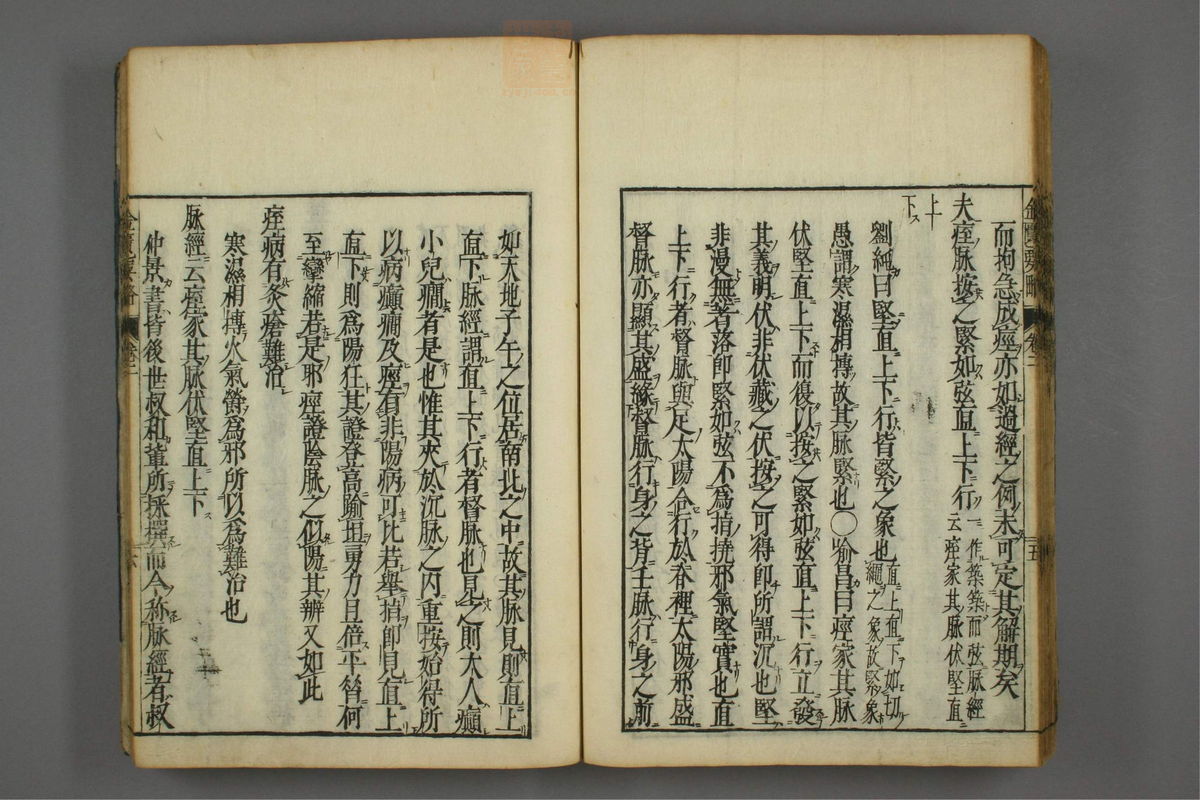 而拘急成痙亦如過經之例未可定其解期矣
夫痙脉按之緊如弦直上下行一作築築而弦脉經云痙家其脉伏堅直
上下
劉純曰堅直上下行皆緊之象也直上直下如切繩之象故緊象
愚謂寒濕相搏故其脉緊也○喻昌曰痙家其脉
伏堅直上下而復以按之緊如弦直上下行立發
其義明伏非伏藏之伏按之可得卽所謂沉也堅
非漫無著落卽緊如弦不為指撓邪氣堅實也直
上下行者督脉與足太陽合行於脊裡太陽邪盛
督脉亦顯其盛緣督脉行身之背壬脉行身之前
如天地子午之位居南北之中故其脉見則直上
直下脉經謂直上下行者督脉也見之則大人癲
小兒癇者是也惟其夾於沉脉之内重按始得所
以病癲癇及痙有非陽病可比若舉指卽見直上
直下則為陽狂其證登高踰垣勇力且倍平昔何
至攣縮若是邪痙證陰脉之似陽其辨又如此
痙病有灸瘡難治
寒濕相搏火氣灸為邪所以為難治也
脉經云痙家其脉伏堅直上下
仲景書皆後世叔和輩所採撰而今称脉經者叔
金匱要略 卷二 五
金匱要略 卷二 六